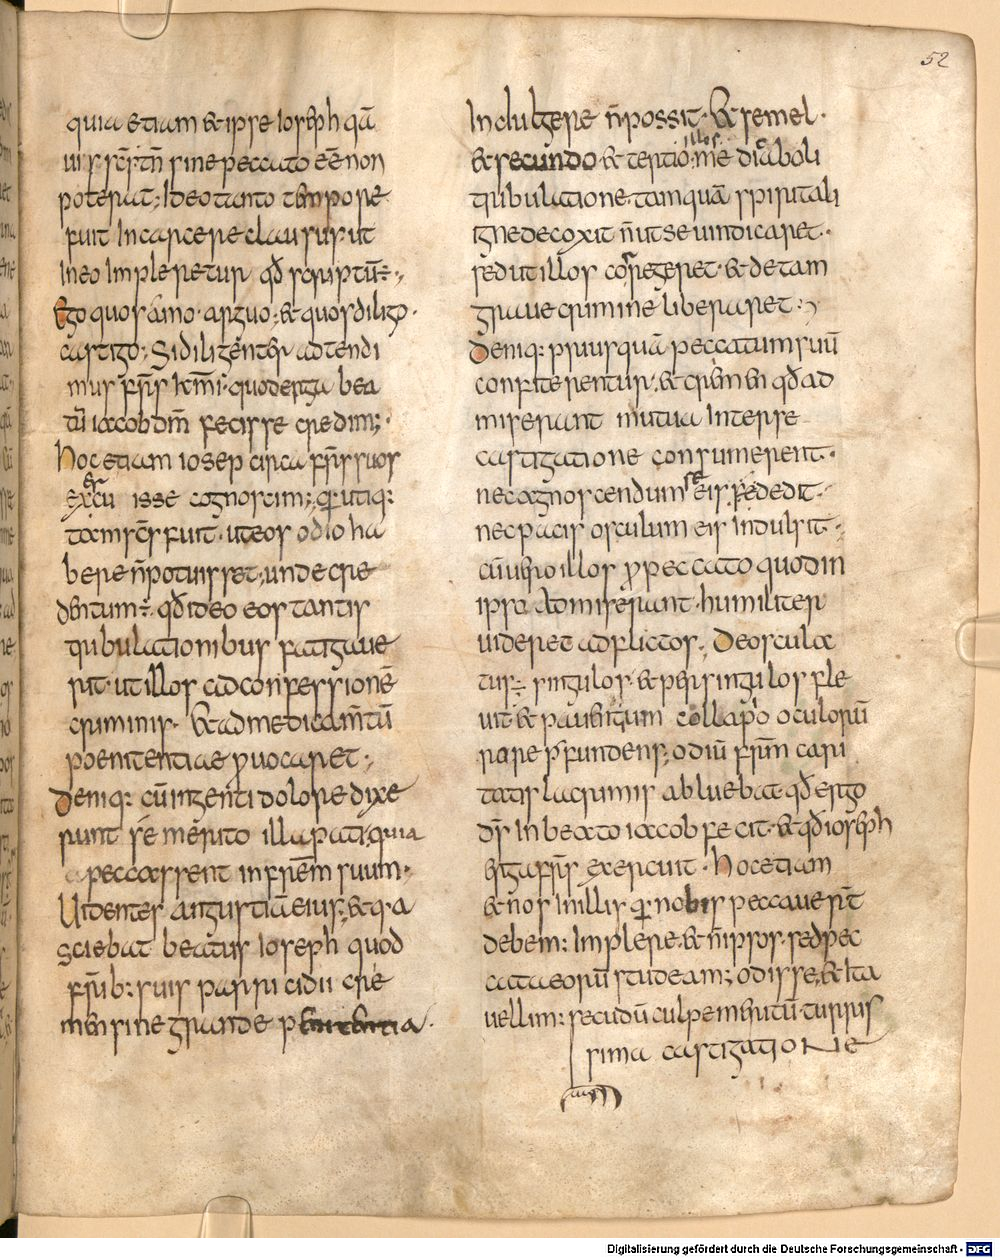 52
quia etiam & ipse Ioseph qā
uis scs̄ tn̄ sine peccato eē non
poterat; Ideo tanto tempore
fuit In carcere clausus· ut
In eo Impleretur qđ scriptū÷;
Ego quos amo· arguo·; & quos diligo·
castigo; Si diligenter adtendi
mus fr̄s km̄i· quod erga bea
tū iacob dm̄ fecisse credim;·
Hoc etiam iosep circa fr̄s suos
exercuisse cognoscim;
tam scs̄ fuit· ut eos odio ha
bere n̄ potuisset; unde cre
dentum÷· qđ ideo eos tantis
tribulationibus fatigaue
rit· ut illos ad confessionē
criminis· & ad medicam̄tū
poenitentiae ꝓuocaret·;
Deniq: cū ingenti dolore dixe
runt se merito illa pati· quia
peccassent in frēm suum·
Uidentes angustiā eius; & q·a
sciebat beatus Ioseph quod
fr̄ib: suis parricidii cri
men sine grande penitentia·
Indulgere n̄ possit· & semel·
& secundo· & tertio· illos me diaboli
tribulatione· tamquā spiritali
Igne decoxit n̄ ut se uindicaret·
sed ut illos corregeret· & de tam
graue crimine liberaret·;
Deniq: priusquā peccatum suū
confiterentur·& crimen qđ ad
miserant mutua Inter se
castigatione consumerent·
nec cognoscendum se eis· dedit·
nec pacis osculum eis Indulsit·;
cū uero illos ꝓ peccato quod in
ipso admiserant· humiliter
uideret adflictos; Deoscula
tus÷ singulos· & per singulos fle
uit· & pauentum colla pio oculorū
rore ꝑfundens; odiū frūm cari
tatis lacrimis abluebat· qđ ergo
ds̄ In beato iacob fecit· & qđ ioseph
erga fr̄s exercuit· hoc etiam
& nos In illis qui nobis peccauerīt
debem: Implere· & n̄ ipsos· sed pec
cata eorū studeam; odisse; & Ita
uellim: secūdū culpe meritū· turris
sima castigatione